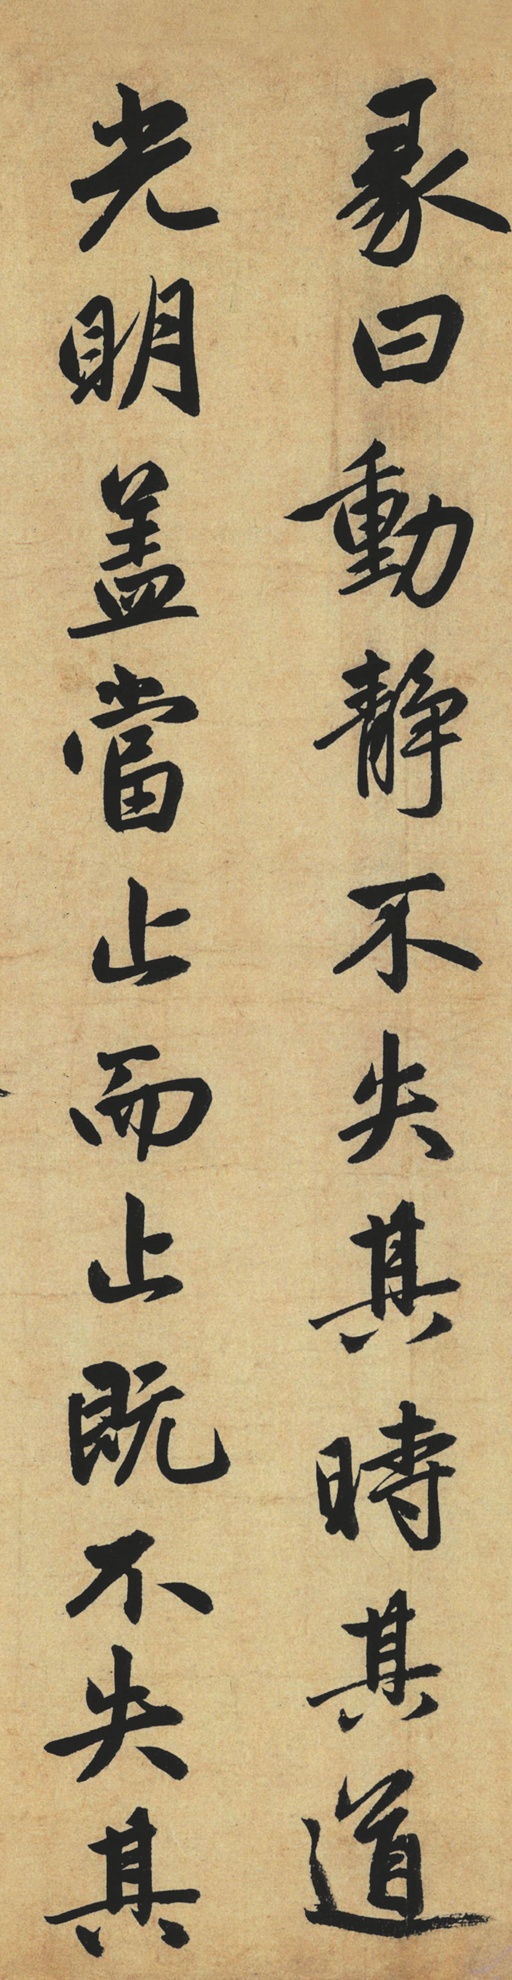 彖曰動靜不失其時其道
光明盖當止而止既不失其